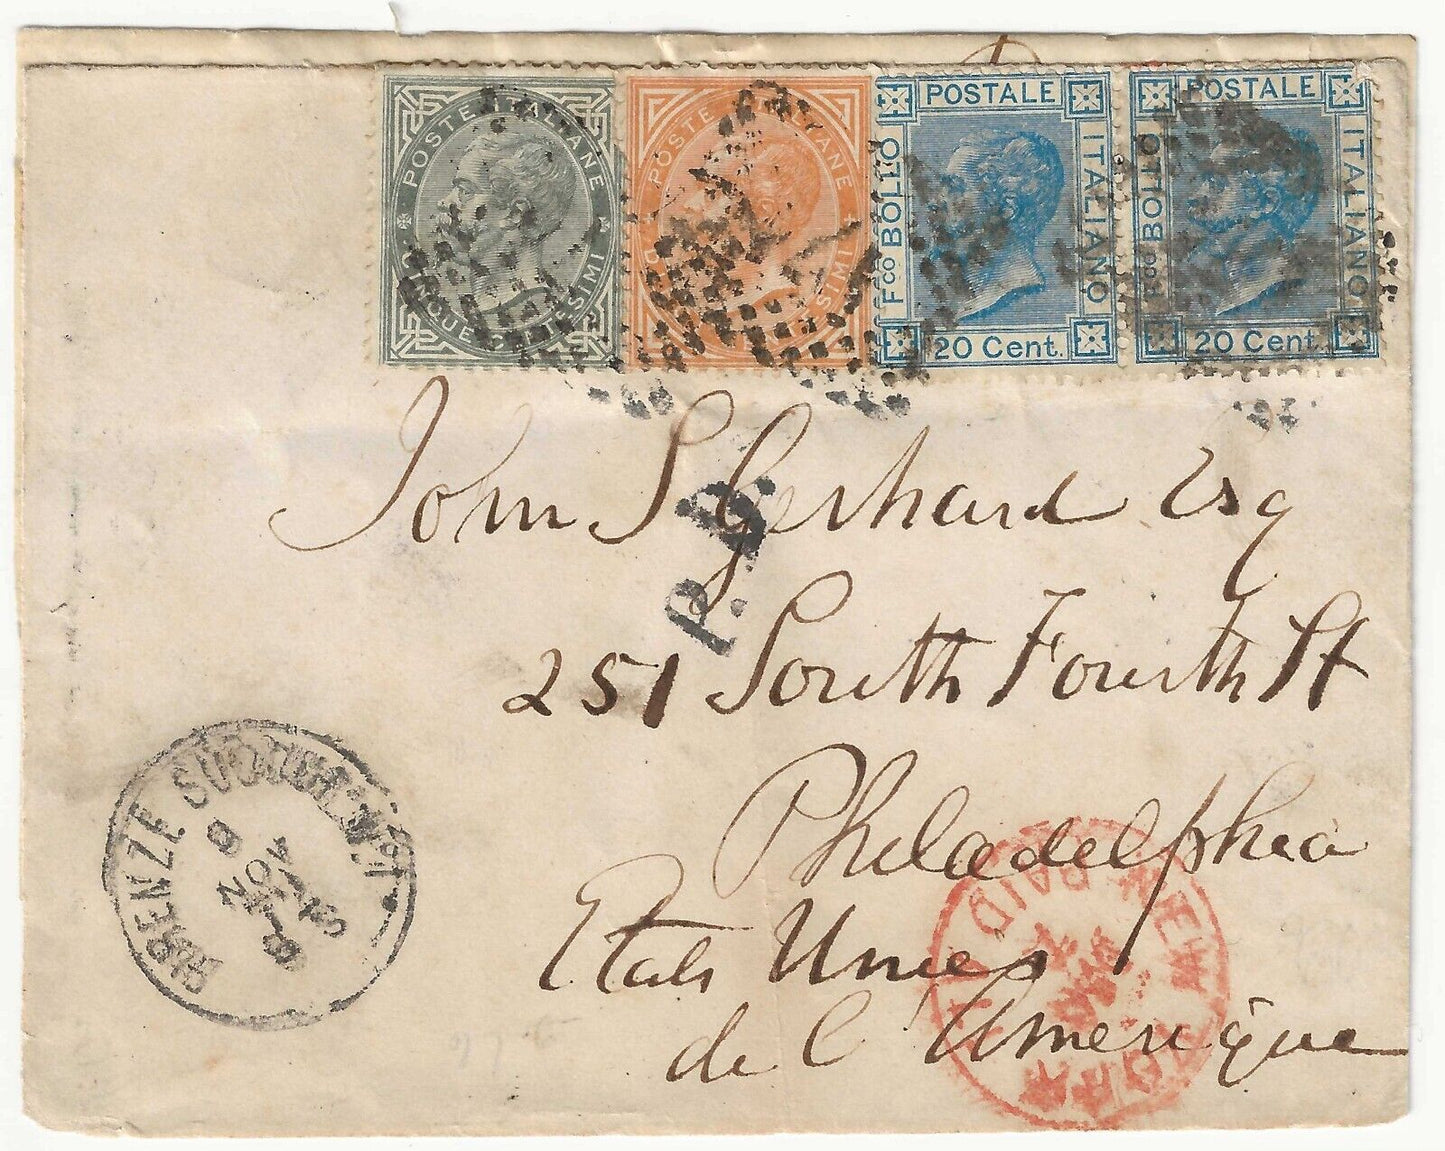 POSTE ITALIANE
CINQUE CENTESIMI
POSTE ITALIANE
Fco BOLLO POSTALE ITALIANO
20 Cent.
Fco BOLLO POSTALE ITALIANO
20 Cent.
John S Gerhard Esq
P.D.
251 South Fourth St
Philadelphia
Etats Unies
de l'Amerique
FIRENZE
9
NOV
NEW YORK
PAID